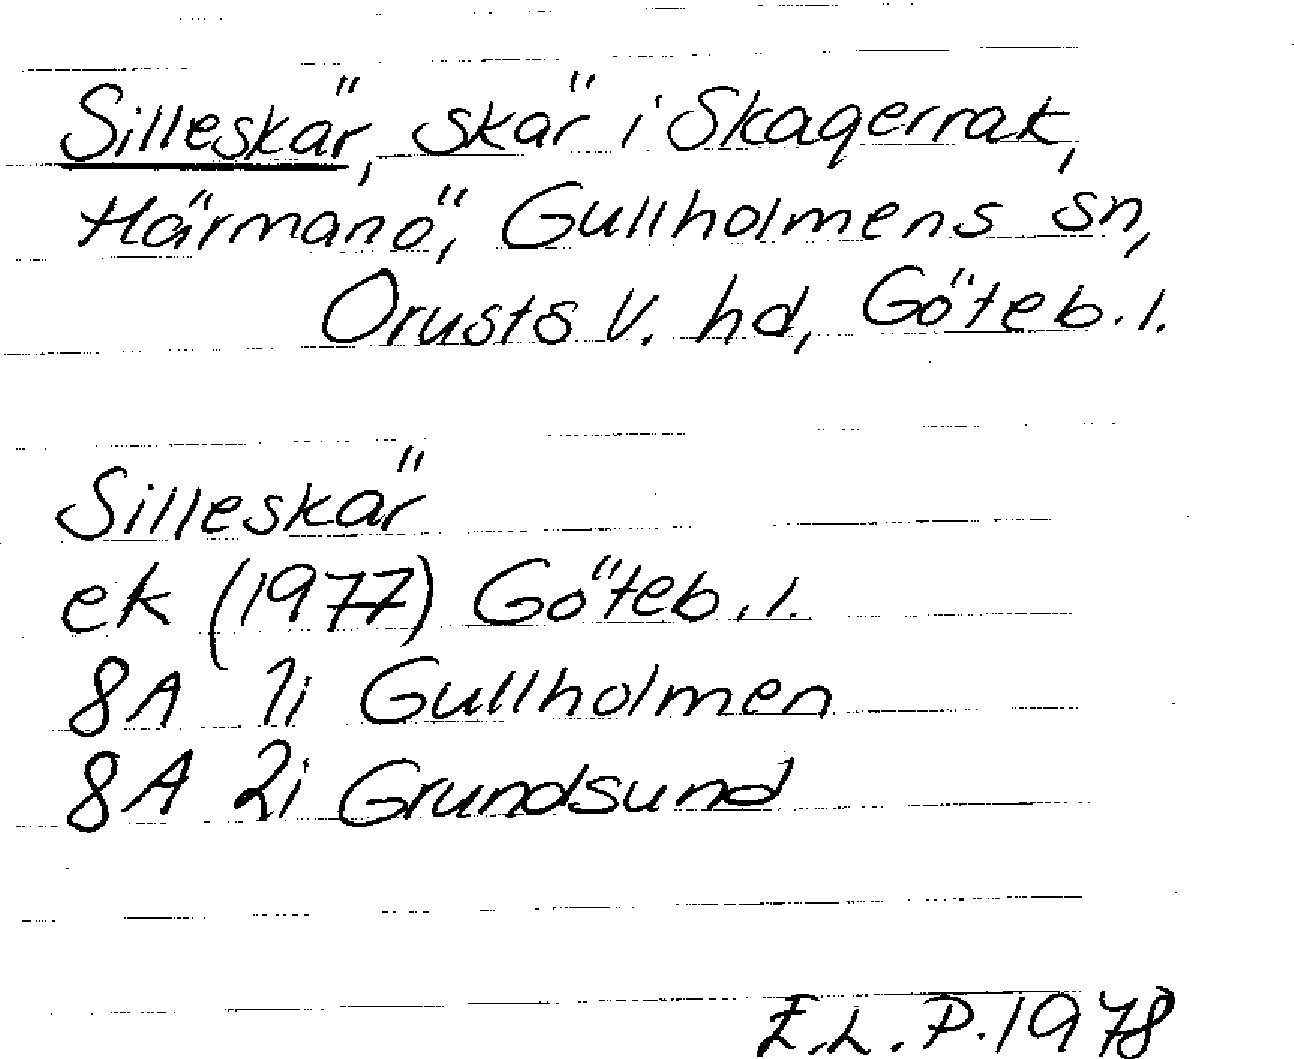 Silleskär, skär i Skagerrak,
Härmanö, Gullholmens sn,
Orusts V. hd, Göteb. l.
Silleskär
ek (1977) Göteb. l.
8A 1i Gullholmen
8A 2i Grundsund
E.L.P. 1978